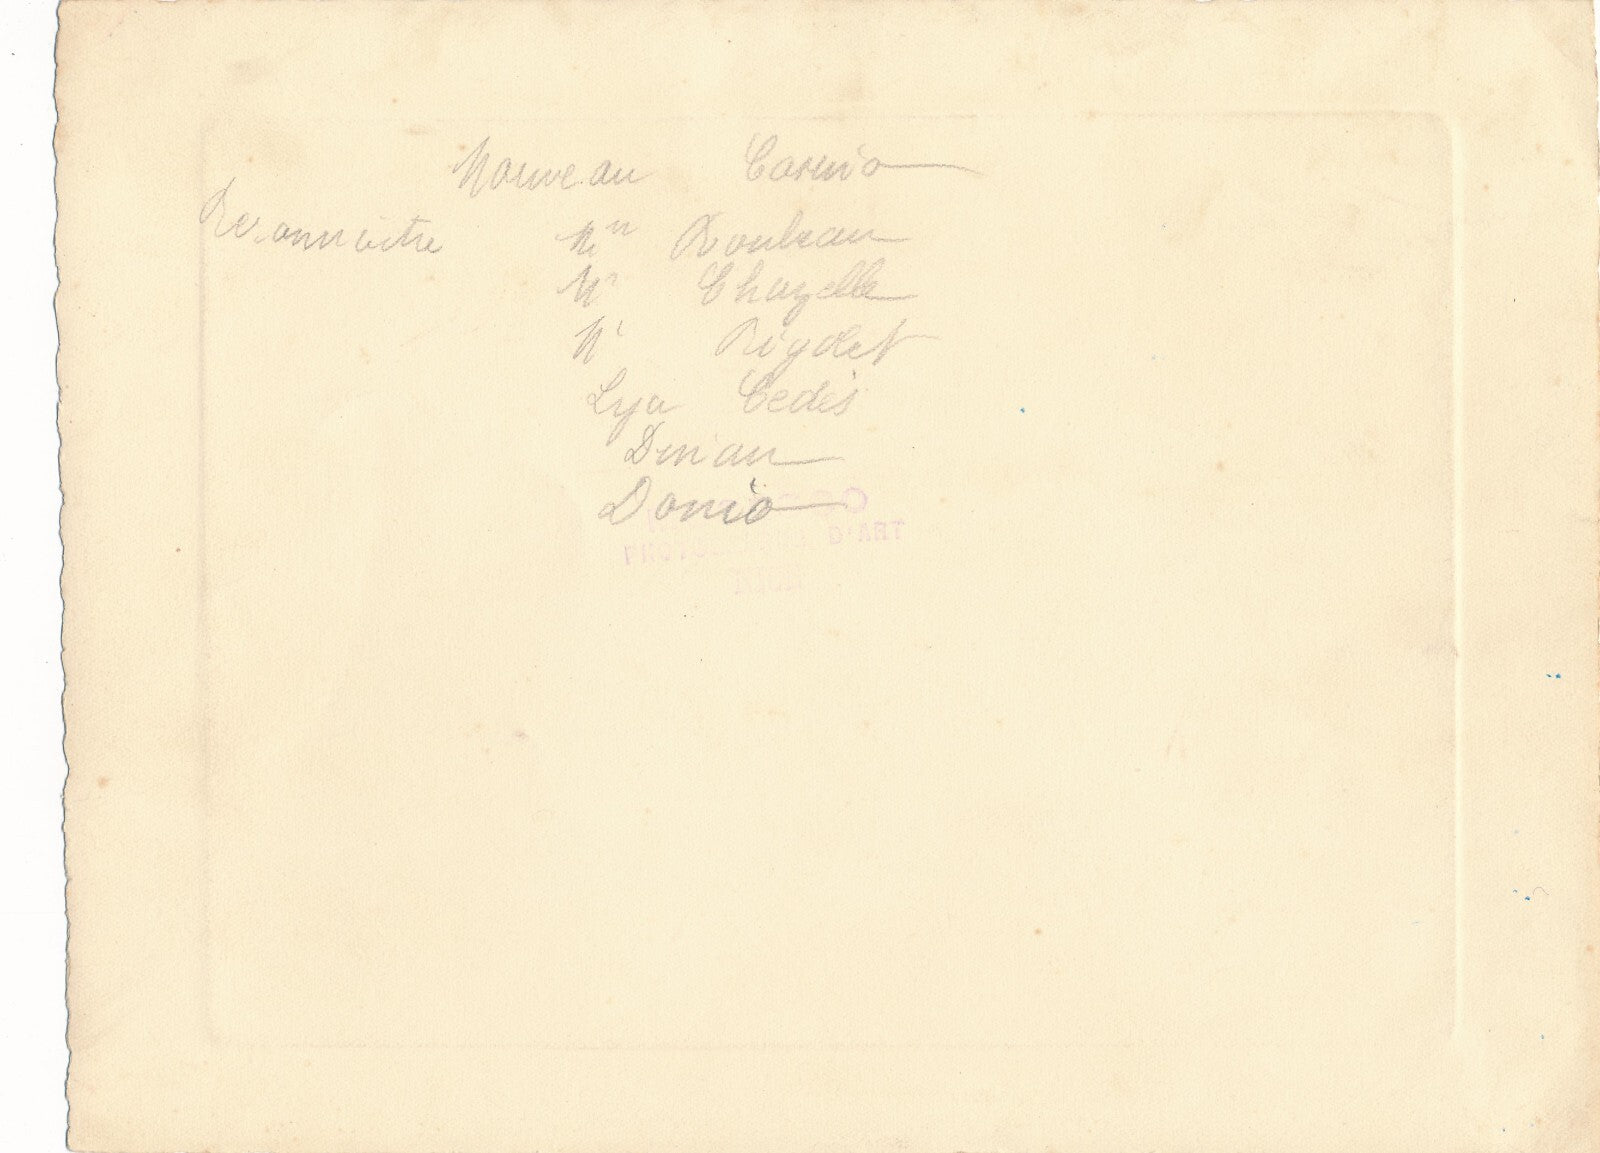 Nouveau Casino
Reconnaitre Mr Rouleau
Mr Chazelle
Mr Rigdet
Lya Cedès
Dinan
Donio
PHOTOGRAPHE D'ART
NICE